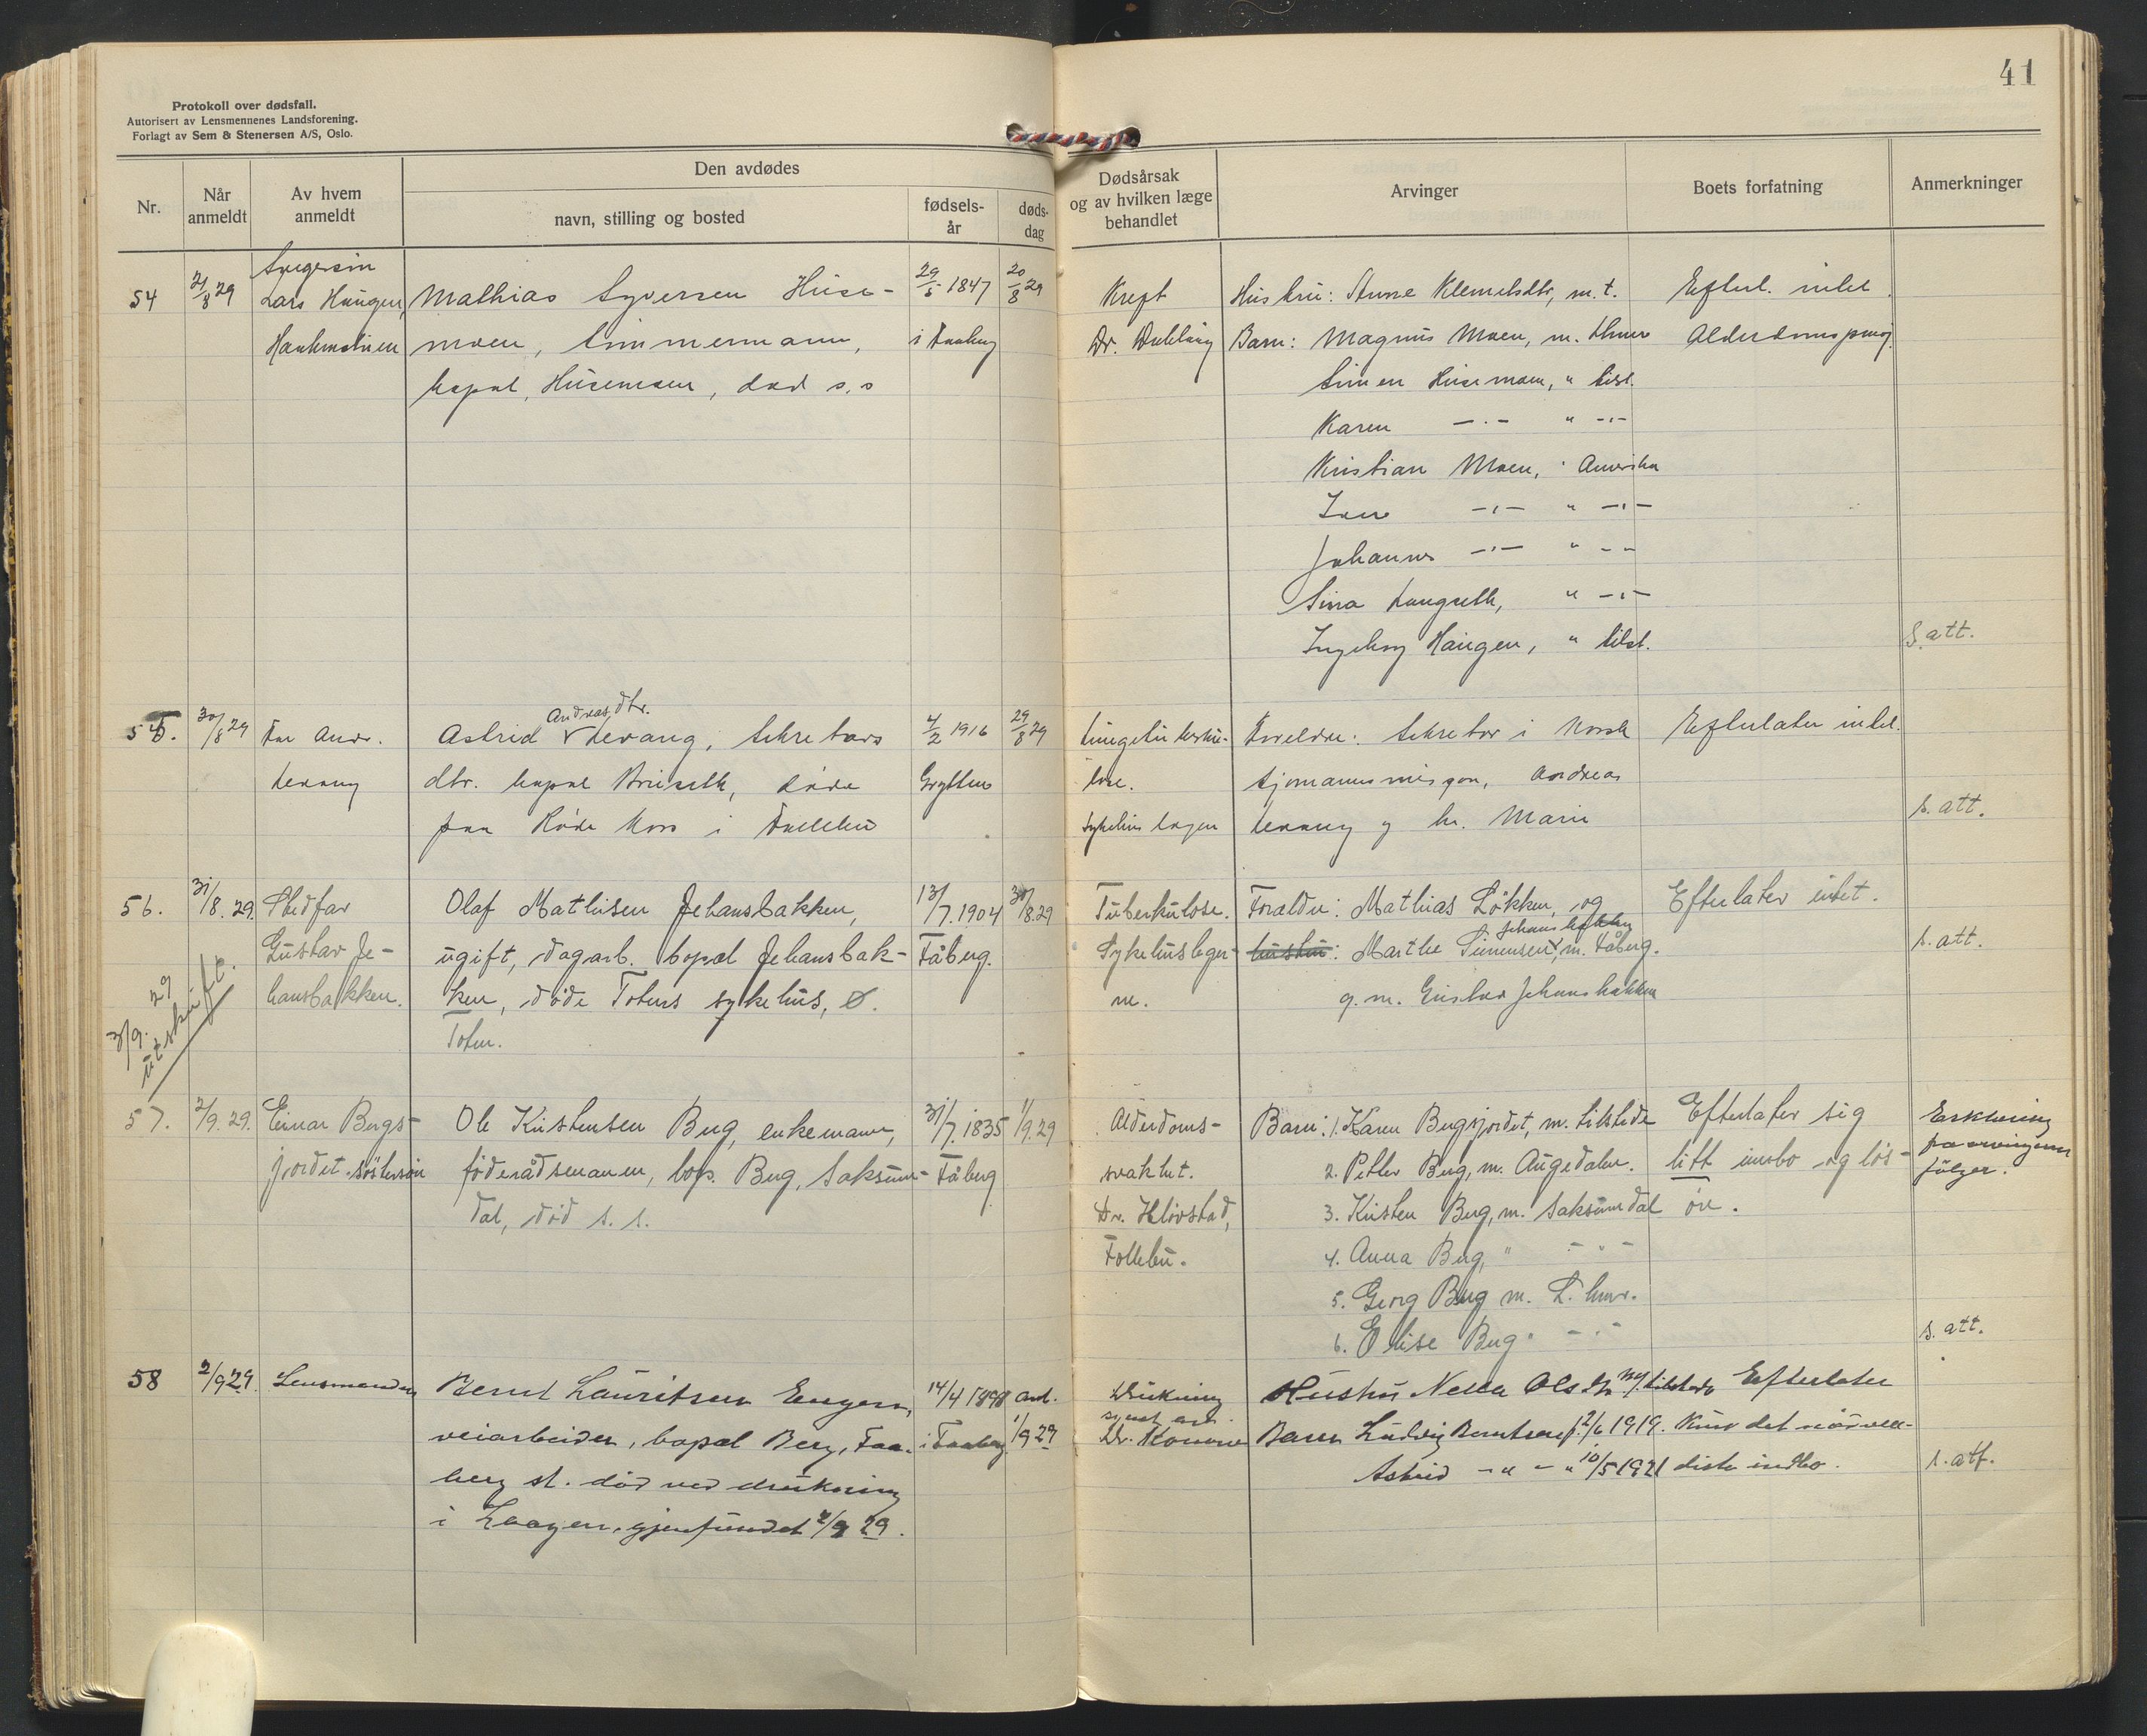 41
Protokoll over dødsfall.
Autorisert av Lensmennenes Landsforening.
Forlagt av Sem & Stenersen A/S, Oslo.
Nr.
Når anmeldt
Av hvem anmeldt
Den avdødes
navn, stilling og bosted
fødsels-år
døds-dag
Dødsårsak og av hvilken læge behandlet
Arvinger
Boets forfatning
Anmerkninger
54
21/8 29
Svigersøn
Lars Haugen,
Mathias Syversen Huse-
moen, tømmermann,
bopæl, Husemoen, død s.s
29/5 1847
i Faaberg
20/8 29
Kreft
Dr.
Hustru: Anne Klemetsdtr, m. t.
Barn: Magnus Moen, m. Lhmr
Simen Husemoen, " tilst.
Karen -.- " -.-
Kristian Moen, " Amerika
-.- " -.-
Johannes -.- " -.-
Sina Langseth, " -.-
Ingeborg Haugen, " tilst.
Efterl. intet.
Alderdomspong.
s. att.
55.
30/8 29
Far Andr.
Levang
Andreasdtr.
Astrid Levang, sekretærs
dtr. bopæl Bruseth, døde
paa Røde Kors i Follebu
4/2 1916
Grytten
29/8 29
Lungetuberku-
lose.
Sykehuslægen
Foreldre: Sekretær i Norsk
sjømannsmisjon, Andreas
Levang og hu. Marie
Efterlater intet.
s. att.
56.
31/8. 29.
Stedfar
Gustav Je-
hansbakken.
Olaf Mathisen Jehansbakken,
ugift, dagarb. bopæl Jehansbak-
ken, døde Totens sykehus, Ø.
Toten.
13/7. 1904
Fåberg.
30/8. 29
Tuberkulose.
Sykehuslegen-
ne.
Forældre: Mathias Løkken, og
Jehansbakken
hustru: Marthe Simensen, m. Fåberg.
g. m. Gustav Jehansbakken
Efterlater intet.
s. att.
3/9. 29
utskrift.
57.
2/9. 29.
Einar Bergs-
jordet. søstersøn
Ole Kristensen Berg, enkemann,
føderådsmannen, bop. Berg, Saksum-
dal, død s. s.
31/7. 1835
Fåberg
1/9. 29
Alderdoms-
svakhet.
Dr. Kløvstad,
Follebu.
Barn: 1. Karen Bergsjordet, m. tilstede
2. Petter Berg, m. Augedalen.
3. Kristen Berg, m. Saksumdal
4. Anna Berg, " - " -
5. Georg Berg m. L. hmr.
6. Elise Berg " - " -
Efterlater sig
litt innbo og løs-
øre.
Erklæring
fra arvingene
følger.
s. att.
58
2/9 29.
Lensmanden
Bernt Lauritsen Engen,
veiarbeider, bopæl Berg, Faa-
berg st. død ved drukning
i Laagen, gjenfundet 2/9 29.
14/4 1898
i Faaberg
ant.
1/9 29
Drukning
Dr.
Hustru Nella Olsdtr m/ tilstede
Barn Ludvig Berntsen f. 2/6 1919.
Astrid -"- " 10/5 1921
Efterlater
Kun det nødven-
digste indbo.
s. att.